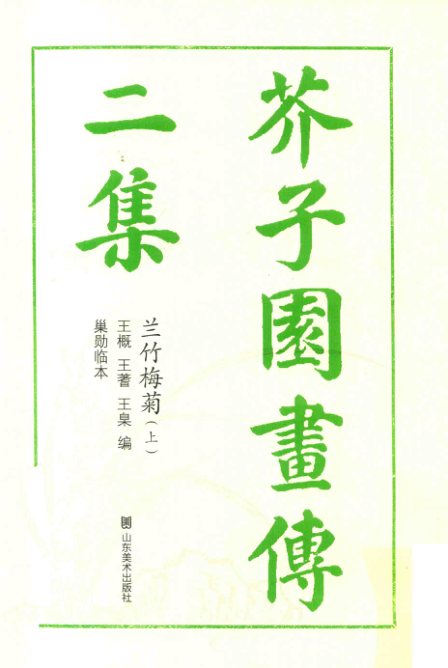 芥子園畫傳
二集
兰竹梅菊(上)
王概 王蓍 王臬 编
巢勋临本
山东美术出版社